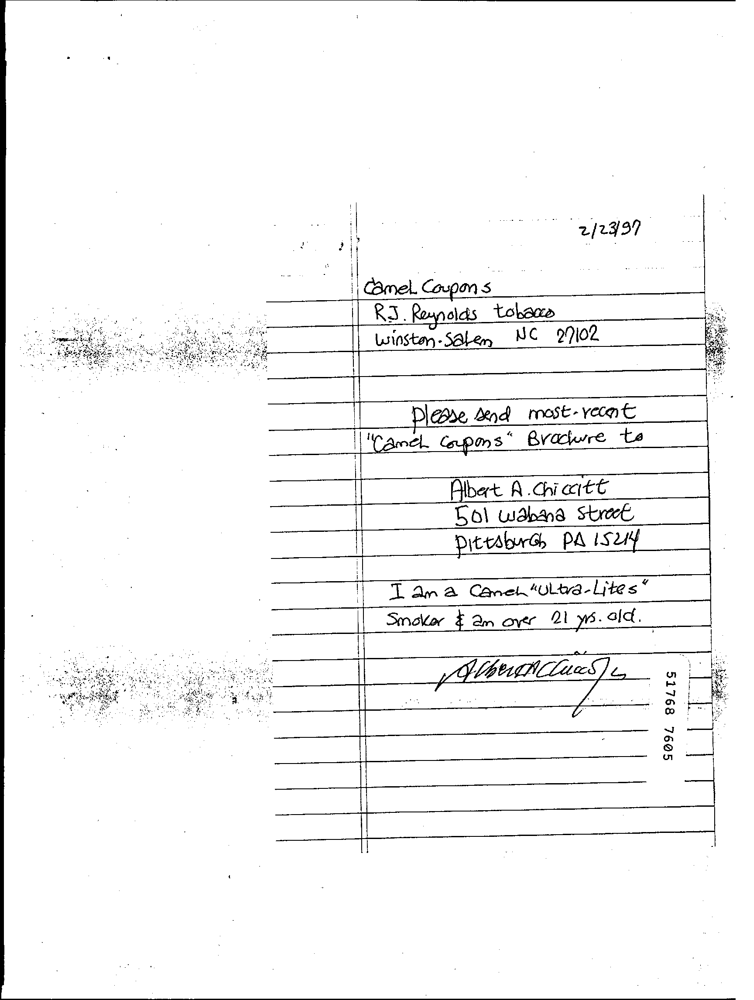 2/23/97
Camel Coupons
R.J. Reynolds tobacco
Winston-Salem NC 27102
Please send most-recent
"Camel Coupons" Brochure to
Albert A. Chiccitt
501 Wabana Street
Pittsburgh PA 15214
I am a Camel "Ultra-Lites"
Smoker & am over 21 yrs. old.
51768 7605